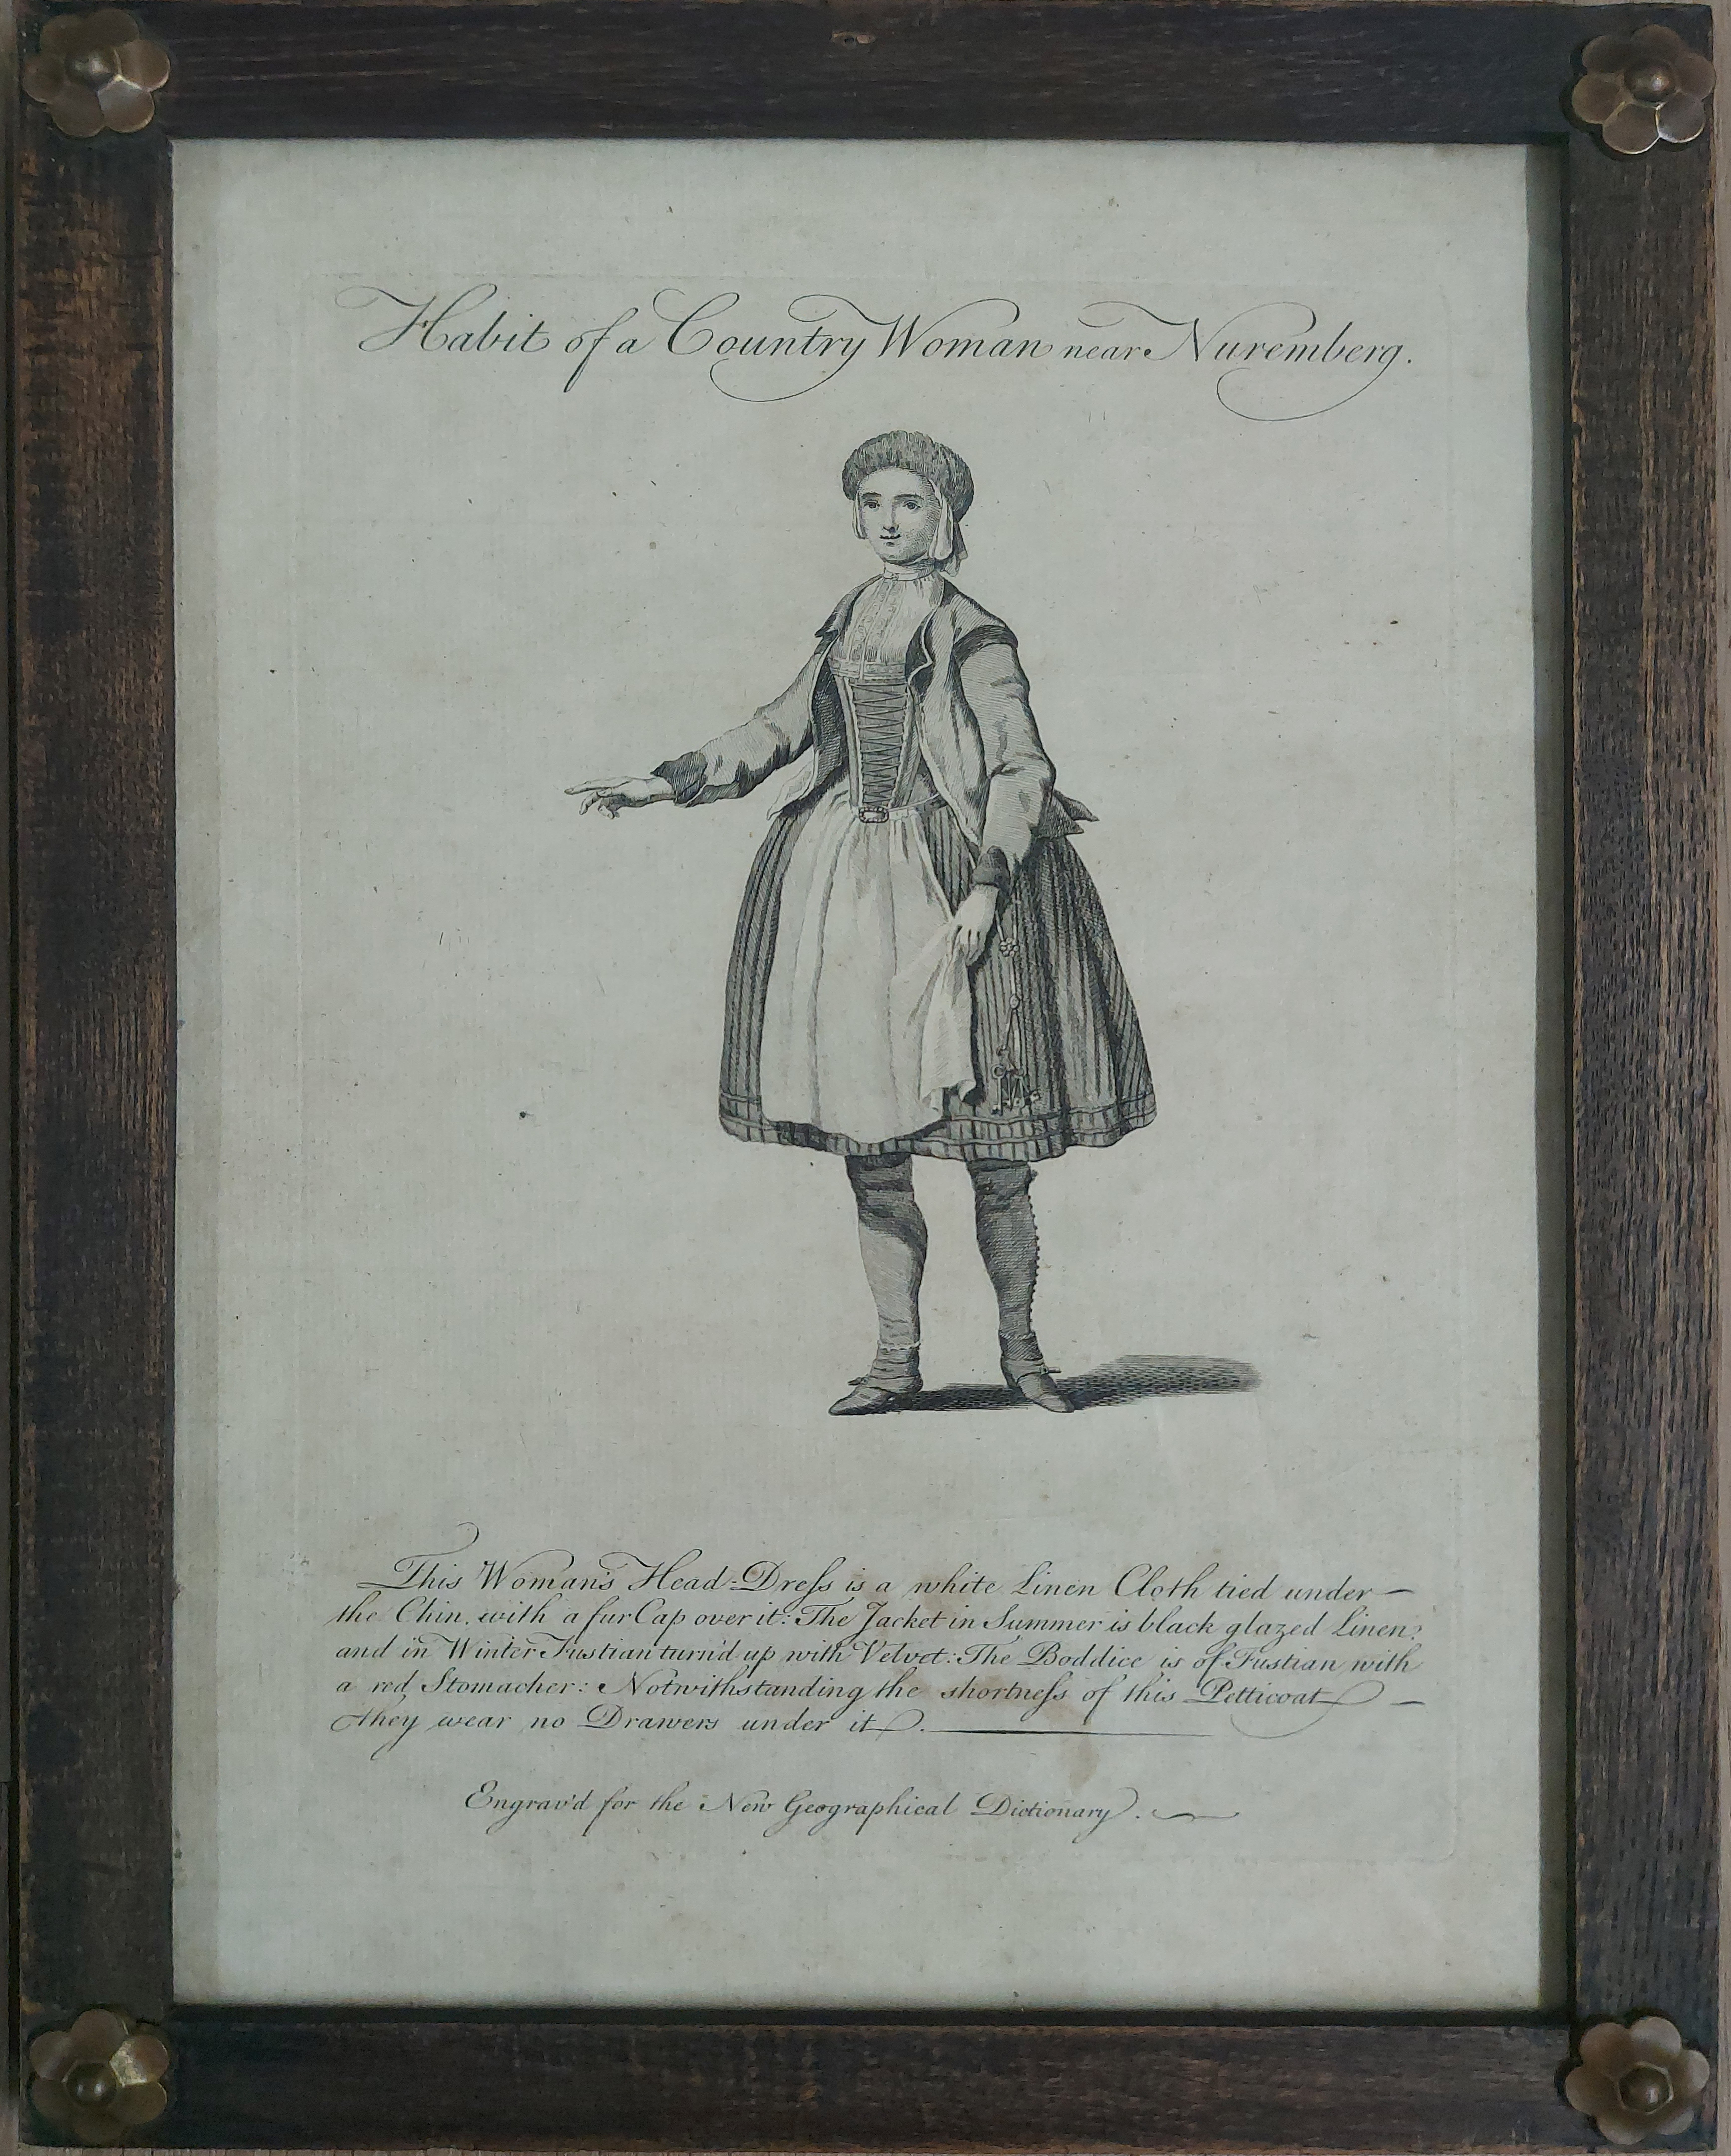 Habit of a Country Woman near Nuremberg.
This Woman's Head-Dreſs is a white Linen Cloth tied under —
the Chin, with a fur Cap over it: The Jacket in Summer is black glazed Linen;
and in Winter Fustian turn'd up with Velvet: The Boddice is of Fustian with
a red Stomacher: Notwithstanding the shortneſs of this Petticoat —
they wear no Drawers under it.
Engrav'd for the New Geographical Dictionary.